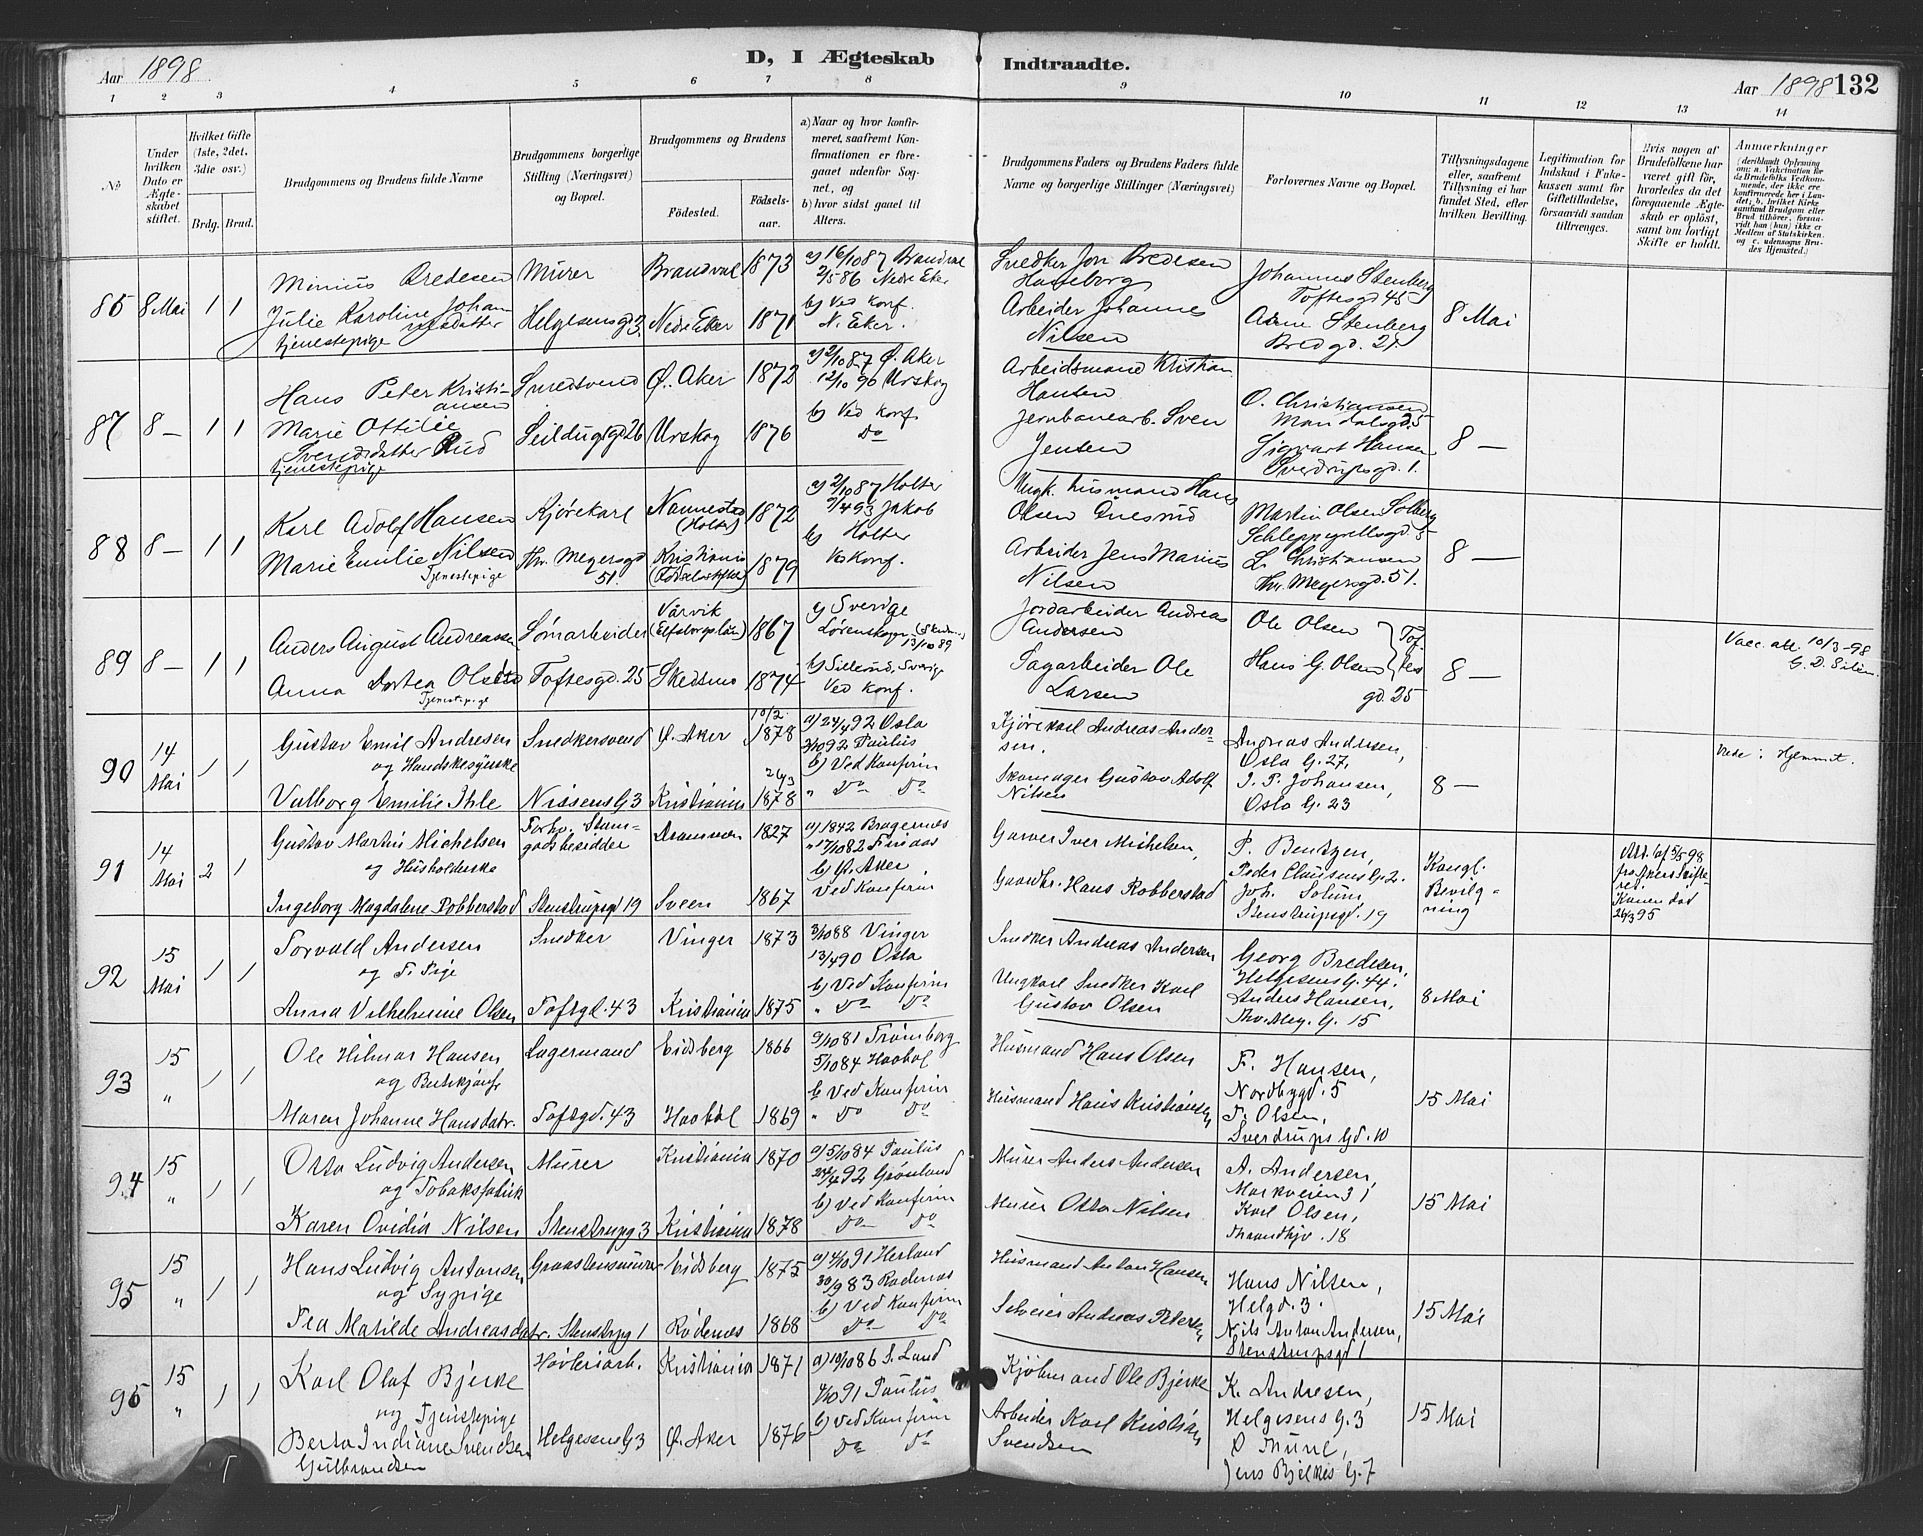 Aar 1898
D, I Ægteskab
Indtraadte.
Aar 1898 132
1 2 3 4 5 6 7 8 9 10 11 12 13 14
No
Under hvilken Dato er Ægteskabet stiftet.
Hvilket Gifte (1ste, 2det, 3die osv.)
Brdg. Brud.
Brudgommens og Brudens fulde Navne
Brudgommens borgerlige Stilling (Næringsvei) og Bopæl.
Brudgommens og Brudens
Födested.
Födselsaar.
a) Naar og hvor konfirmeret, saafremt Konfirmationen er foregaaet udenfor Sognet, og
b) hvor sidst gaaet til Alters.
Brudgommens Faders og Brudens Faders fulde Navne og borgerlige Stillinger (Næringsvei)
Forlovernes Navne og Bopæl.
Tillysningsdagene eller, saafremt Tillysning ei har fundet Sted, efter hvilken Bevilling.
Legitimation for Indskud i Enkekassen samt for Giftetilladelse, forsaavidt saadan tiltrænges.
Hvis nogen af Brudefolkene har været gift för, hvorledes da det foregaaende Ægteskab er oplöst, samt om lovligt Skifte er holdt.
Anmærkninger
(deriblandt Oplysning om: a. Vakcination for de Brudefolks Vedkommende, der ikke ere konfirmerede her i Landet; b. hvilket Kirkesamfund Brudgom eller Brud tilhörer, forsaavidt han (hun) ikke er Medlem af Statskirken, og c. udensogns Brudes Hjemsted.)
86 8 Mai 1 1
Julie Karoline Johannesdatter
tjenestepige
Murer
Helgesensgd 3
Brandval 1873
Nedre Eker 1871
a) 16/10 87 Brandval
2/5 86 Nedre Eker
b) Ved Konf.
N. Eker.
Snedker Jon Bredesen
Arbeider Johannes
Nilsen
Johannes Stenberg
Toftesgd 45
Anne Stenberg
Bredgd. 21.
8 Mai
87 8 — 1 1
Hans Peter Kristiansen
Marie Ottilie
Svendsdatter Rud
tjenestepige
Smedsvend
Seildugsgd 26
Ø. Aker 1872
Urskog 1876
a) 2/10 87 Ø. Aker
12/10 90 Urskog
b) Ved Konf.
Do
Arbeidsmand Kristian
Hansen
Jernbanearb. Sven
Jensen
O. Christiansen
Mandalsgd. 5
Sigvart Hansen
Sverdrupsgd. 1.
8 —
88 8 — 1 1
Karl Adolf Hansen
Marie Emilie Nilsen
Tjenestepige
Kjørekarl
Thv. Meyersgd 51.
Nannestad (Holter) 1872
Kristiania (Fødselsstiftelse) 1879
a) 2/10 87 Holter
9/4 93 Jakob
b) Holter
Ved Konf.
Ungk. husmand Hans
Olsen
Arbeider Jens Marius
Nilsen
Martin Olsen Solberg
Schleppegrellsgd. 5
L. Christiansen
Thv. Meyersgd. 51.
8 —
89 8 — 1 1
Anders August Andreassen
Anna Dortea Olsen
Tjenestepige
Toftesgd. 25
Vårvik (Elfsborgslän) 1867
Skedsmo 1874
a) Sverige
Lørenskogen (Skedsmo) 13/10 89
b) Sillerud, Sverige
Ved Konf.
Jordarbeider Andreas
Andersen
Sagarbeider Ole
Larsen
Ole Olsen
Hans G. Olsen
Toftesgd 25
8 —
Vacc. att. 10/3-98
90 14 Mai 1 1
Gustav Emil Andresen
og Handskesyerske
Valborg Emilie Ihle
Snedkersvend
Nissens G. 3
Ø. Aker 10/2 1878
Kristiania 1878
a) 24/4 92 Oslo
2/10 92 Paulus
b) Ved Konfirm
" Do Do
Kjørekarl Andreas Andersen.
Skomager Gustav Adolf
Nilsen
Andreas Andresen,
Oslo G. 27,
I. P. Johansen,
Oslo G. 23
8 —
Viede i Hjemmet.
91 14 Mai 2 1
Gustav Martin Michelsen
og Husholderske
Ingeborg Magdalene Robberstad
Forhv. Stamgodsbesidder
Stenstrupsgd 19
Drammen 1827
Sveen 1867
a) 1842 Bragernes
" 1/10 82 Finaas
b) Ø. Aker
Ved Konfirm
Garver Iver Michelsen,
Gaardbr. Hans Robberstad
P. Bentzen,
Peder Claussens G. 2.
Joh. Solum,
Stenstrupsgd. 19
Kongl.
Bevilgning
Att. af 5/5 98
fra Akers Skifteret.
Konen död
26/3 95
92 15 Mai 1 1
Torvald Andersen
og T. Pige
Anna Vilhelmine Olsen
Snedker
Toftsgd. 43
Vinger 1873
Kristiania 1875
a) 3/10 88 Vinger
13/4 90 Oslo
b) Ved Konfirm
" Do Do
Snedker Andreas Andersen
Ungkarl Snedker Karl
Gustav Olsen
Georg Bredesen,
Helgesens G. 44.
Anders Hansen,
Thv. Mey. G. 15
8 Mai
93 15 " 1 1
Ole Hilmar Hansen
Maren Johanne Hansdatr.
Lagermand
Toftsgd. 43
Eidsberg 1866
Haabøl 1869
a) 9/10 81 Trømborg
5/10 84 Haabøl
b) Ved Konfirm
" Do Do
Husmand Hans Olsen
Husmand Hans Kristiansen
F. Hansen,
Nordbygd. 5
T. Olsen,
Sverdrups Gd. 10
15 Mai
94 15 " 1 1
Otto Ludvig Andersen
og Tobaksfabrik
Karen Ovidia Nilsen
Murer
Stenstrupg 3
Kristiania 1870
Kristiania 1878
a) 5/10 84 Paulus
24/4 92 Grønland
b) Ved Konfirm
Do Do
Murer Anders Andersen
Murer Otto Nilsen
A. Andersen,
Markveien 31
Karl Olsen,
Throndhjv. 18
15 Mai
95 15 " 1 1
Hans Ludvig Antonsen
og Sypige
Tea Matilde Andreasdatr.
Graastensmurer
Stenstrpg 1
Eidsberg 1875
Rødenes 1868
a) 4/10 91 Herland
30/9 83 Rødenes
b) Ved Konfirm
Do Do
Husmand Anton Hansen
Selveier Andreas Petersen
Hans Nilsen,
Helgd. 3.
Nils Anton Andersen,
Stenstrupsgd 1
15 Mai
96 15 " 1 1
Karl Olaf Bjerke
og Tjenstepige
Berta Indiane Svendsen
Gulbrandsen
Høvleriarb.
Helgesens G. 3
Kristiania 1871
Ø. Aker 1876
a) 10/10 86 S. Land
4/10 91 Paulus
b) Ved Konfirm
Do Do
Kjøbmand Ole Bjerke
Arbeider Karl Kristian
Svendsen
K. Andresen,
Helgesens G. 3
Jens Bjelkes G. 7
15 Mai